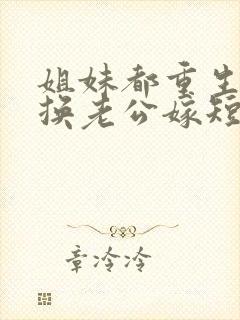 姐妹都重生
换老公嫁短
章冷冷